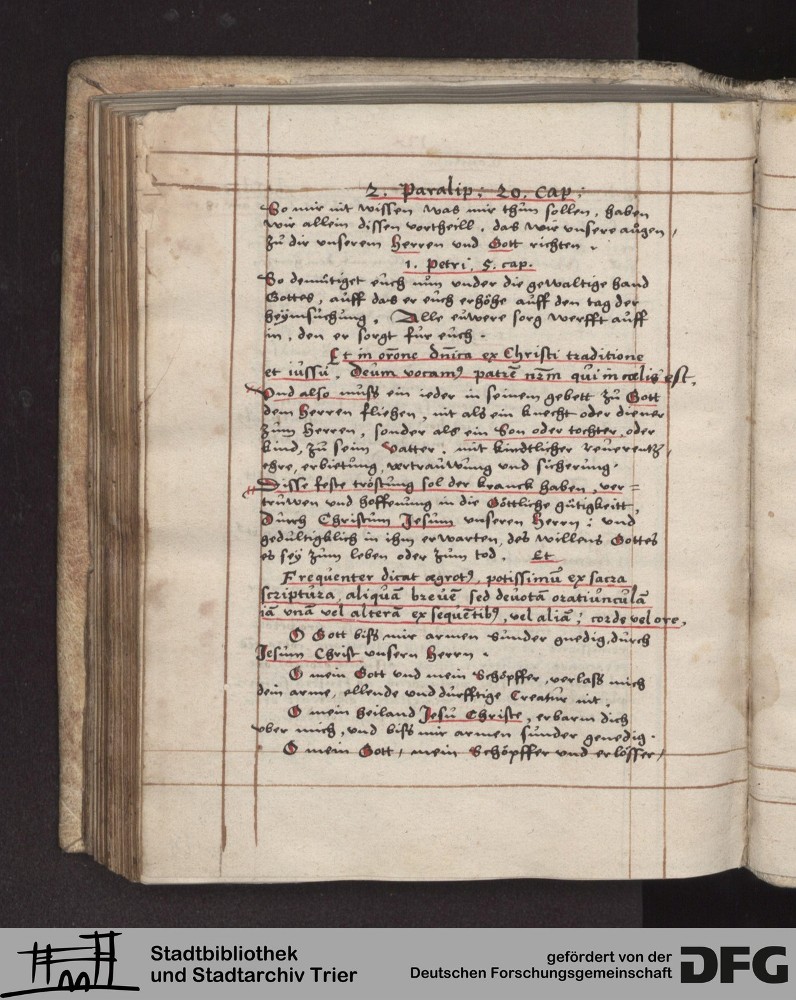 2. Paralip: 20. Cap:
So mir nit wissen was mir thun sollen, haben
wir allein dissen vortheill, das wir unsere augen,
zu dir unserem Herren und Gott richten.
1. Petri. 5. cap.
So demutiget euch nun under die gewaltige hand
Gottes, auff das er euch erhöhe auff den tag der
heÿmsuchung. Alle eüwere sorg werfft auff
in, den er sorgt fur euch.
Et in orōne dn̄ica ex Christi traditione
et iussu. Deum vocamꝰ patrē nr̄m qui in cœlis est.
Und also muss ein ieder in seinem gebett zu Gott
dem Herren fliehen, nit als ein knecht oder diener
zum Herren, sonder als ein Son oder tochter, oder
kind, zu seim vatter. mit kindtlicher reverentz,
ehre, erbietung, vertrauwung und sicherung.
Disse feste tröstung sol der kranck haben, ver=
truwen und hoffenung in die Göttliche gütigkeitt,
Durch Christum Jesum unseren Herrn: und
gedultigklich in ihm erwarten, des willens Gottes
es seÿ zum leben oder zum tod. Et
Frequenter dicat ægrotꝰ, potissimū ex sacra
scriptura, aliquā brevē sed devotā oratiunculā
iā unā vel alterā ex sequētibꝰ, vel aliā; corde vel ore.
O Gott biss mir armen sunder gnedig, durch
Jesum Christ unsern Herrn.
O mein Gott und mein Schöpffer, verlass mich
dein arme, ellende und durfftige Creatur nit.
O mein heiland Jesu Christe, erbarm dich
uber mich, und biss mir armen sunder genedig.
O mein Gott, mein Schöpffer und erlösser,
Stadtbibliothek
und Stadtarchiv Trier
gefördert von der
Deutschen Forschungsgemeinschaft
DFG